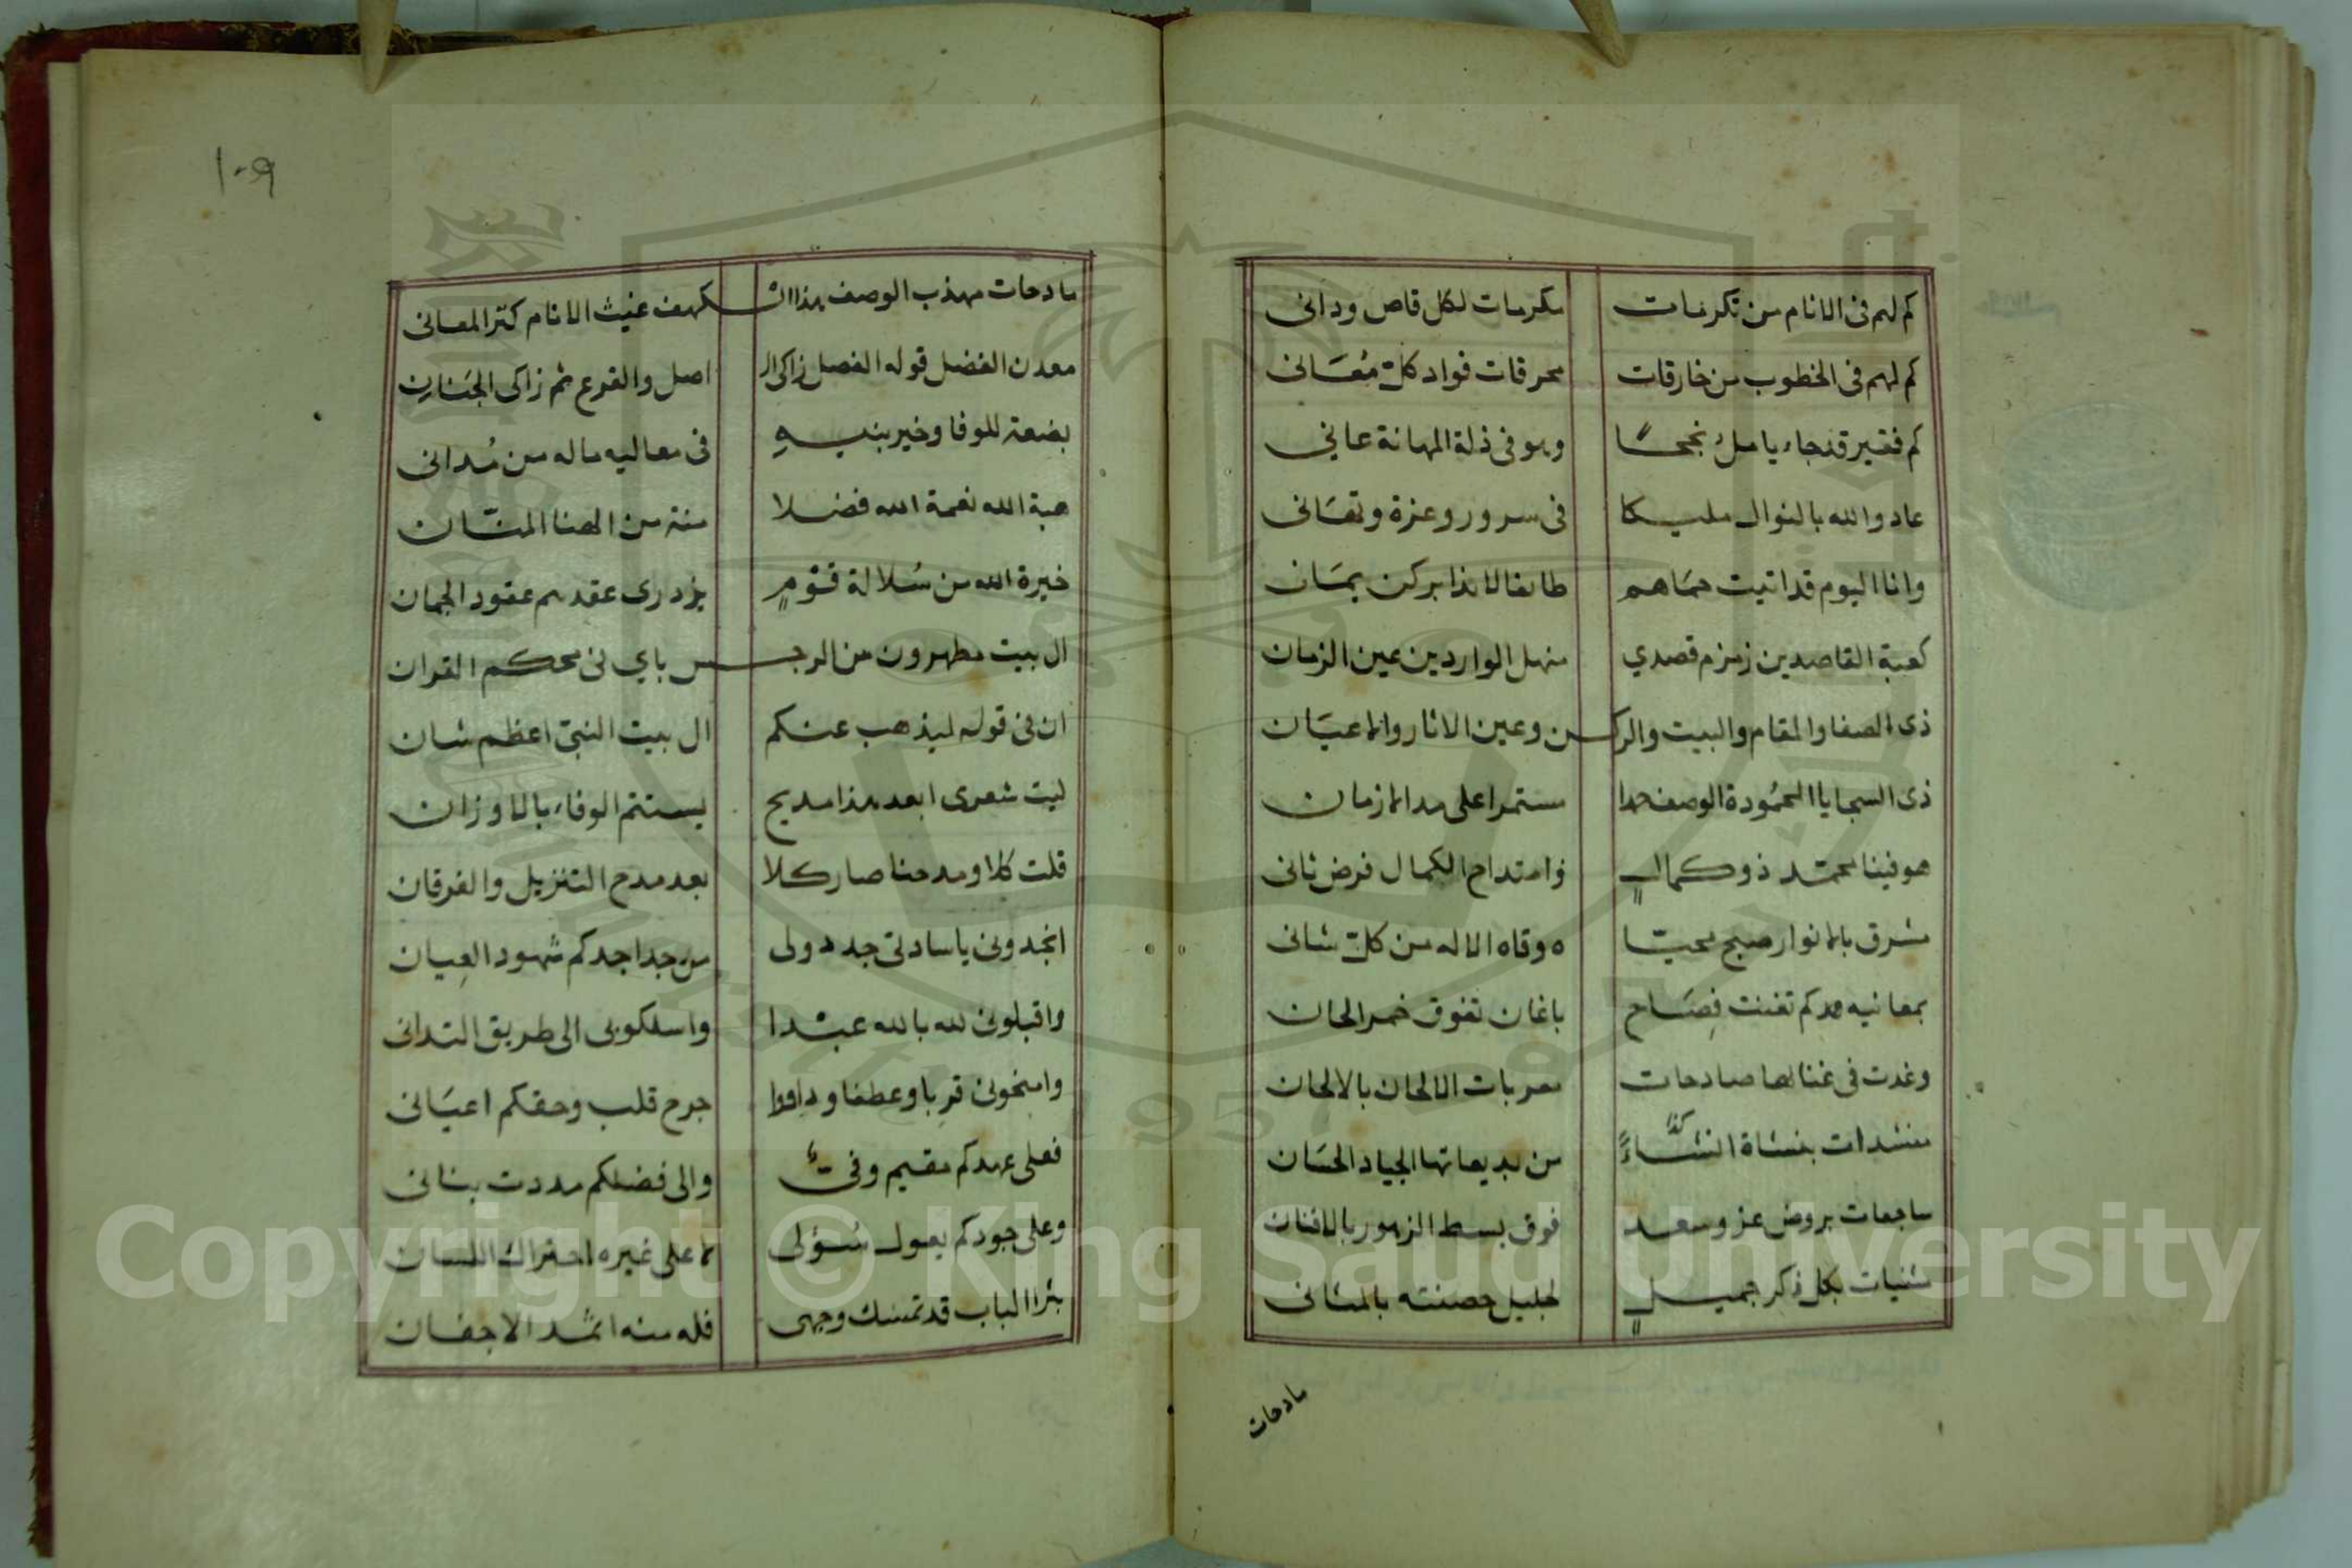 كم لهم فى الانام من تكرمات مكرمات لكل قاص ودانى
كم لهم فى الخطوب من خارقات محرقات فواد كلّ مُعَانى
كم فقير قد جاء يامل نجحًا وهو فى ذلة المهانة عاني
عاد والله بالنوال مليكا فى سرور وعزة وتهَانى
وانا اليوم قد اتيت حمَاهم طائفا لائذا بركن يمَان
كعبة القاصدين زمزم قصدي منهل الواردين عين الزمان
ذى الصفا والمقام والبيت والركن وعين الاثار والاعيَان
ذى السجايا المحمُودة الوصف حمدا مستمرا على مدا الازمان
هو فينا محمّد ذو كمالٍ وامتداح الكمال فرض ثانى
مشرق بالانوار صبح محيّا ه وقاه الاله من كلّ شانى
بمعانيه كم تغنت فِصَاح باغان تفوق خمر الحان
وغدت فى غنائها صادحات معربات الالحان بالالحان
منشدات بنشاة النشّاءً كذا من بديعاتها الجياد الحسَان
ساجعات بروض عز وسعد فوق بسط الزهور بالافنان
مثنيات بكل ذكر جميلٍ لجليل حصنته بالمثانى
مادحات
١٠٩
مادحات مهذب الوصف هذا الكهف غيث الانام كنز المعانى
معدن الفضل قوله الفصل زاكى ال اصل والفرع ثم زاكى الجَنانِ
بضعة للوفا وخير بنيهِ فى معاليه ماله من مُدانى
هبة الله نعمة الله فضلا منة من الهنا المنّان
خيرة الله من سُلالة قَوْمٍ يزدرى عقدهم عقود الجمان
ال بيت مطهرون من الرجس باي فى محكم القران
ان فى قوله ليذهب عنكم ال بيت النبىّ اعظم شان
ليت شعرى ابعد هذا مديح يستتم الوفاء بالاوزان
قلت كلا ومدحنا صار كلا بعد مدح التنزيل والفرقان
انجدونى ياسادتى جددولى من جدا جدكم شهود العِيان
واقبلونى لله بالله عبْدا واسلكوبى الى طريق التدانى
وامنحونى قربا وعطفا وداووا جرح قلب وحقكم اعيَانى
فعلى عهدكم مقيم وفىٌ والى فضلكم مددت بنانى
وعلى جودكم يعول سُؤلى لا على غيره احتراك اللسان
بثرا الباب قد تمسك وجهى فله منه اثمد الاجفان
Copyright © King Saud University